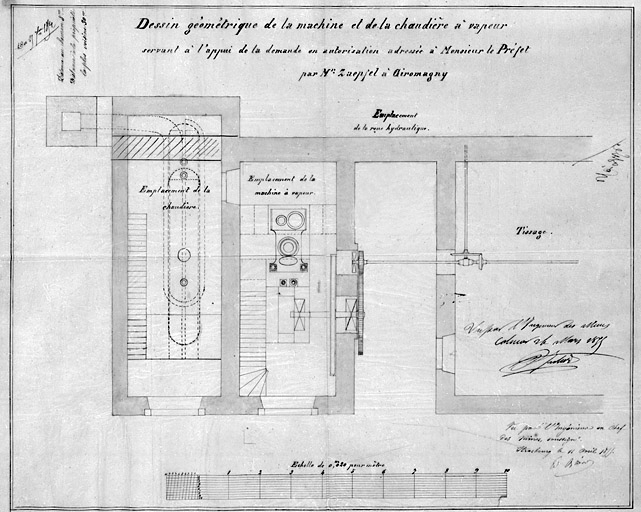 Dessin géométrique de la machine et de la chaudière à vapeur
servant à l'appui de la demande en autorisation adressée à Monsieur le Préfet
par Mr. Zaepfel à Giromagny
Emplacement
de la roue hydraulique.
Emplacement de la
chaudière.
Emplacement de la
machine à vapeur.
Tissage.
Vu par l'Ingénieur des Mines
Colmar 26 Mars
Vu par l'Ingénieur en chef
des Mines soussigné
Strasbourg le 11 Avril
Echelle de 0,020 pour mètre
1 2 3 4 5 6 7 8 9 10